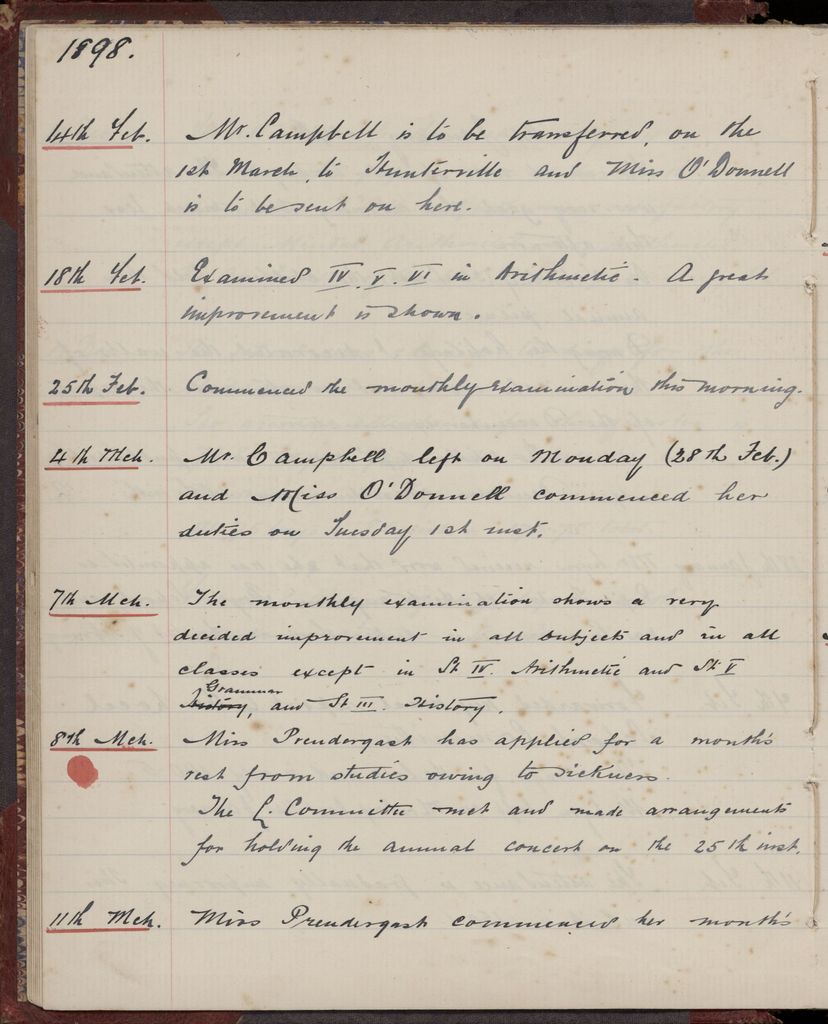 1898.
14th Feb. Mr. Campbell is to be transferred, on the
1st March, to Hunterville and Miss O'Donnell
is to be sent on here.
18th Feb. Examined IV. V. VI in Arithmetic. A great
improvement is shown.
25th Feb. Commenced the monthly examination this morning.
4th Mch. Mr. Campbell left on Monday (28th Feb.)
and Miss O'Donnell commenced her
duties on Tuesday 1st inst.
7th Mch. The monthly examination shows a very
decided improvement in all subjects and in all
classes except in St IV. Arithmetic and St V
Grammar
History, and St III. History.
8th Mch. Miss Prendergast has applied for a month's
rest from studies owing to sickness.
The Committee met and made arrangements
for holding the annual concert on the 25th inst.
11th Mch. Miss Prendergast commenced her month's